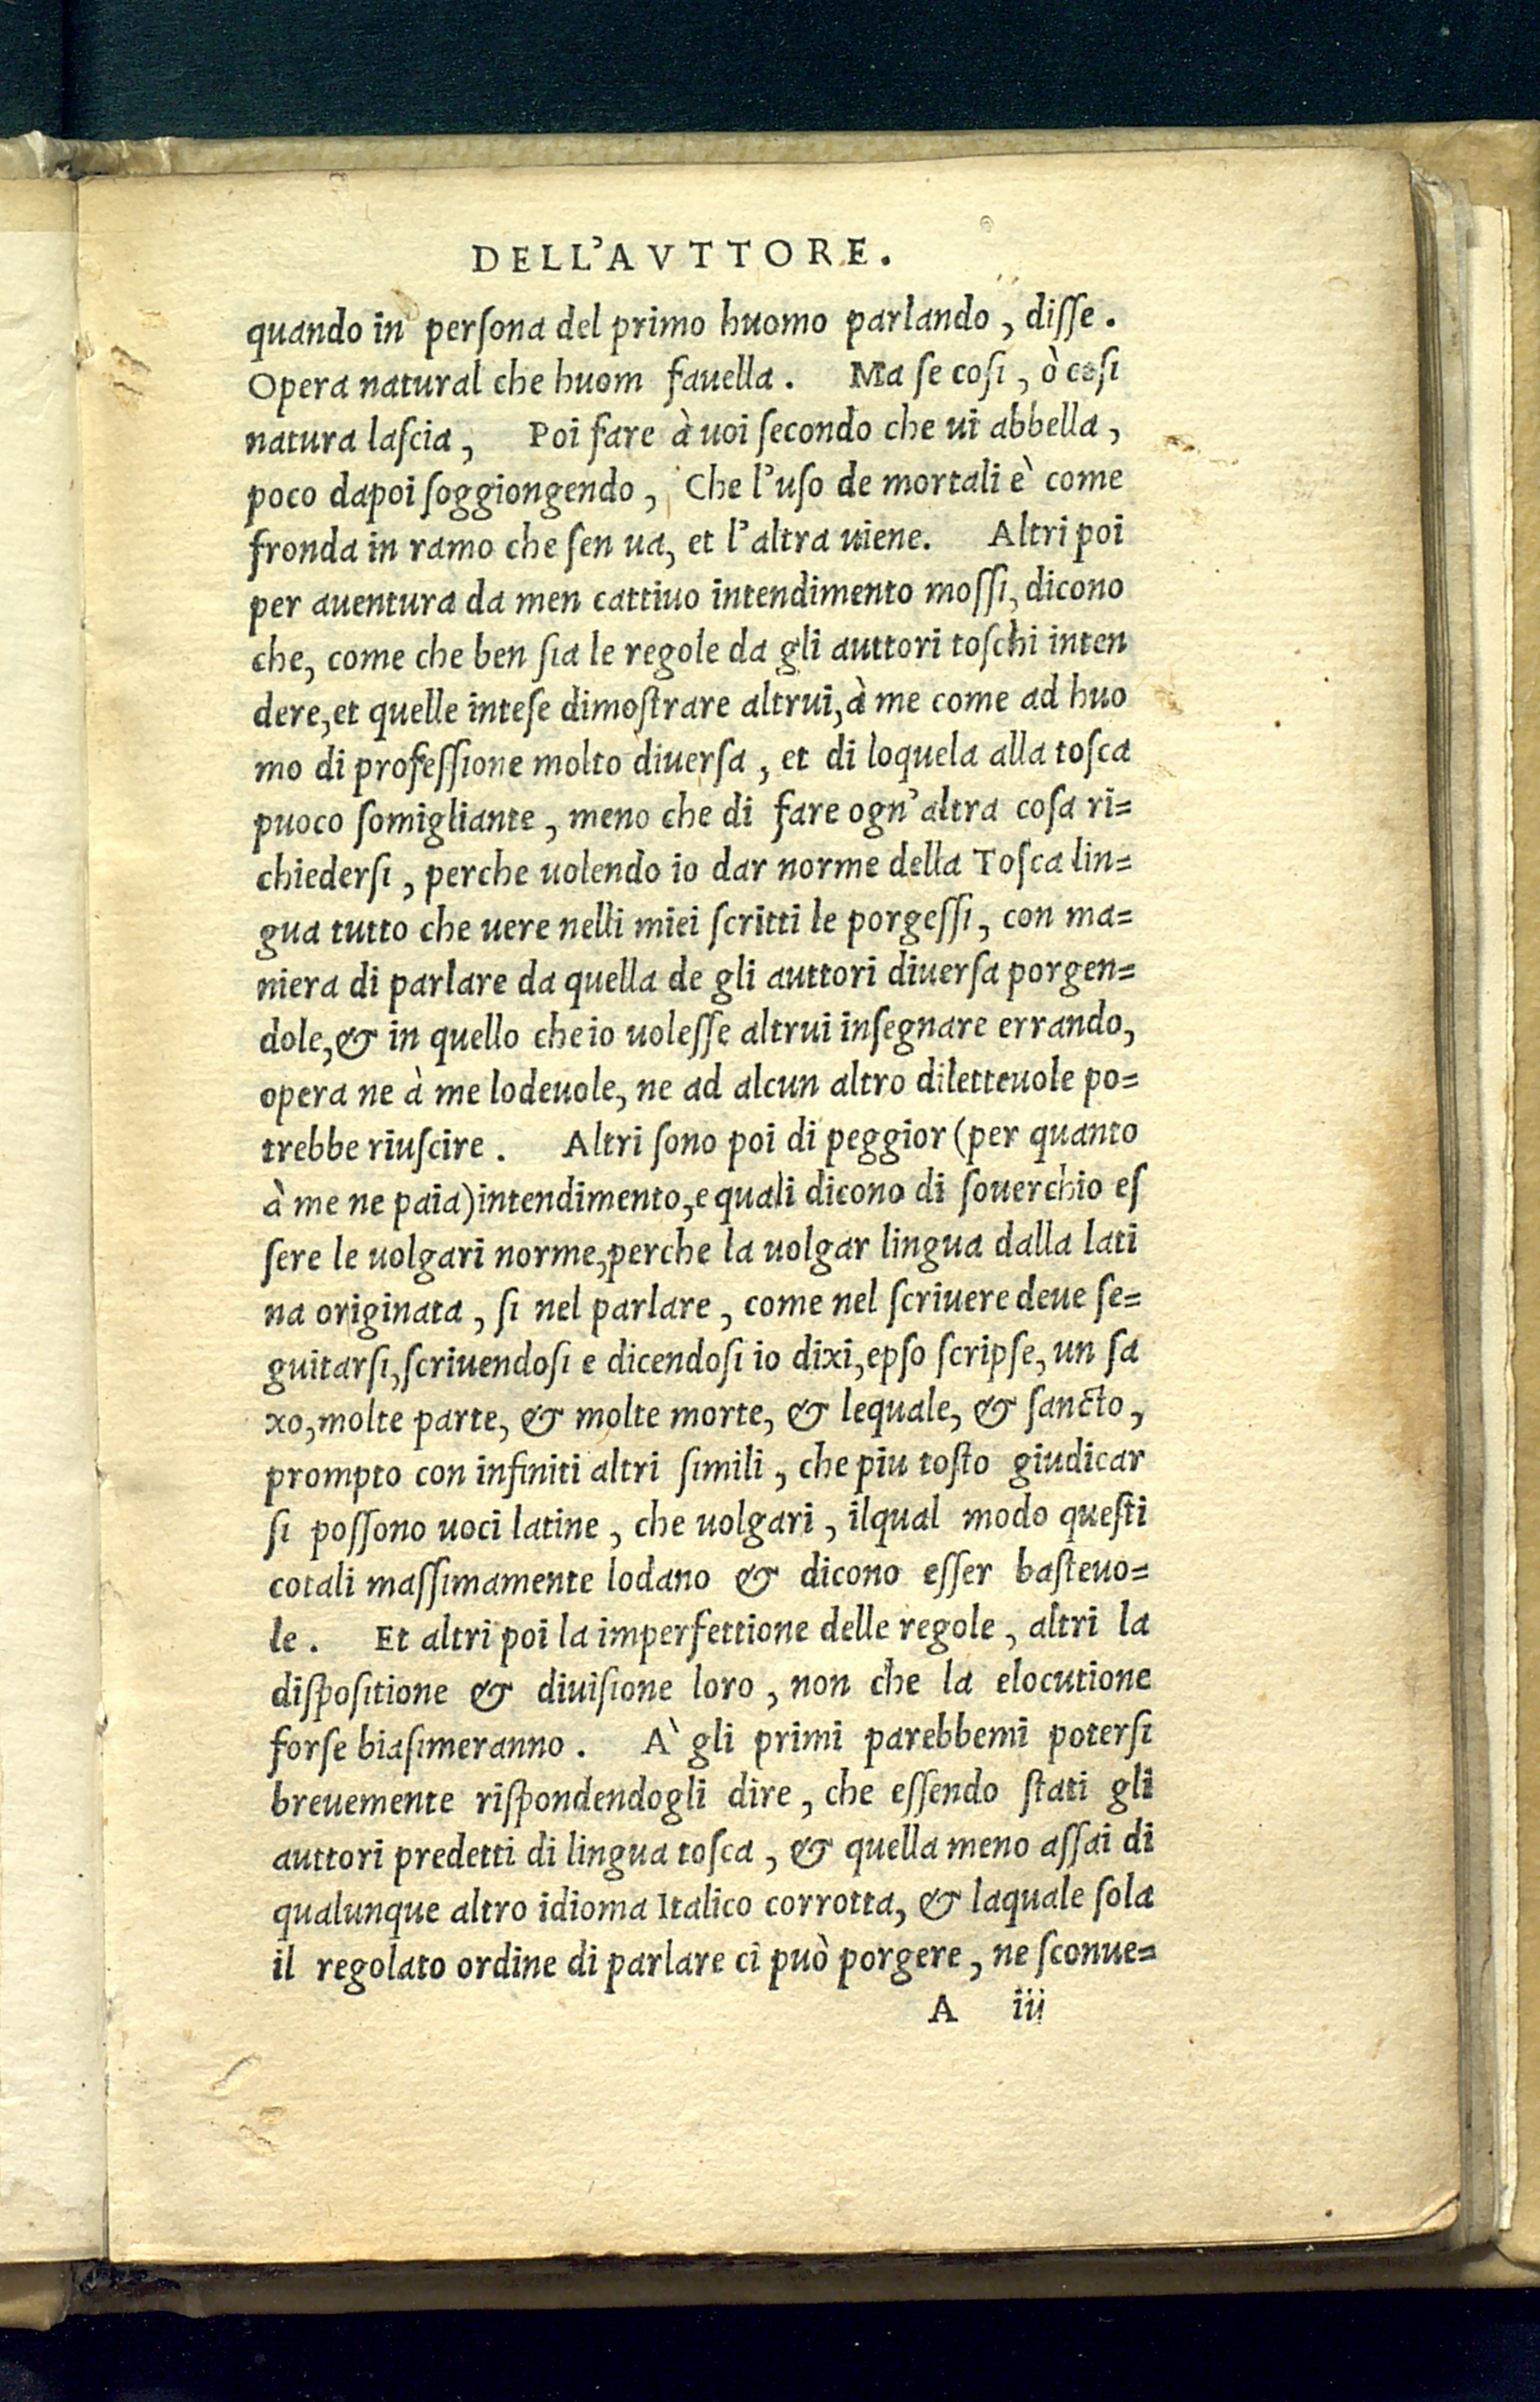 DELL'AVTTORE.
quando in perſona del primo huomo parlando, diſſe.
Opera natural che huom fauella. Ma ſe coſi, ò coſi
natura laſcia, Poi fare à uoi ſecondo che ui abbella,
poco dapoi ſoggiongendo, Che l'uſo de mortali è come
fronda in ramo che ſen ua, et l'altra uiene. Altri poi
per auentura da men cattiuo intendimento moſſi, dicono
che, come che ben ſia le regole da gli auttori toſchi inten
dere, et quelle inteſe dimoſtrare altrui, à me come ad huo
mo di profeſſione molto diuerſa, et di loquela alla toſca
puoco ſomigliante, meno che di fare ogn'altra coſa ri=
chiederſi, perche uolendo io dar norme della Toſca lin=
gua tutto che uere nelli miei ſcritti le porgeſſi, con ma=
niera di parlare da quella de gli auttori diuerſa porgen=
dole, & in quello che io uoleſſe altrui inſegnare errando,
opera ne à me lodeuole, ne ad alcun altro diletteuole po=
trebbe riuſcire. Altri ſono poi di peggior (per quanto
à me ne paia) intendimento, e quali dicono di ſouerchio eſ
ſere le uolgari norme, perche la uolgar lingua dalla lati
na originata, ſi nel parlare, come nel ſcriuere deue ſe=
guitarſi, ſcriuendoſi e dicendoſi io dixi, epſo ſcripſe, un ſa
xo, molte parte, & molte morte, & lequale, & ſancto,
prompto con infiniti altri ſimili, che piu toſto giudicar
ſi poſſono uoci latine, che uolgari, ilqual modo queſti
cotali maſſimamente lodano & dicono eſſer baſteuo=
le. Et altri poi la imperfettione delle regole, altri la
diſpoſitione & diuiſione loro, non che la elocutione
forſe biaſimeranno. A' gli primi parebbemi poterſi
breuemente riſpondendogli dire, che eſſendo ſtati gli
auttori predetti di lingua toſca, & quella meno aſſai di
qualunque altro idioma Italico corrotta, & laquale ſola
il regolato ordine di parlare ci può porgere, ne ſconue=
A iii